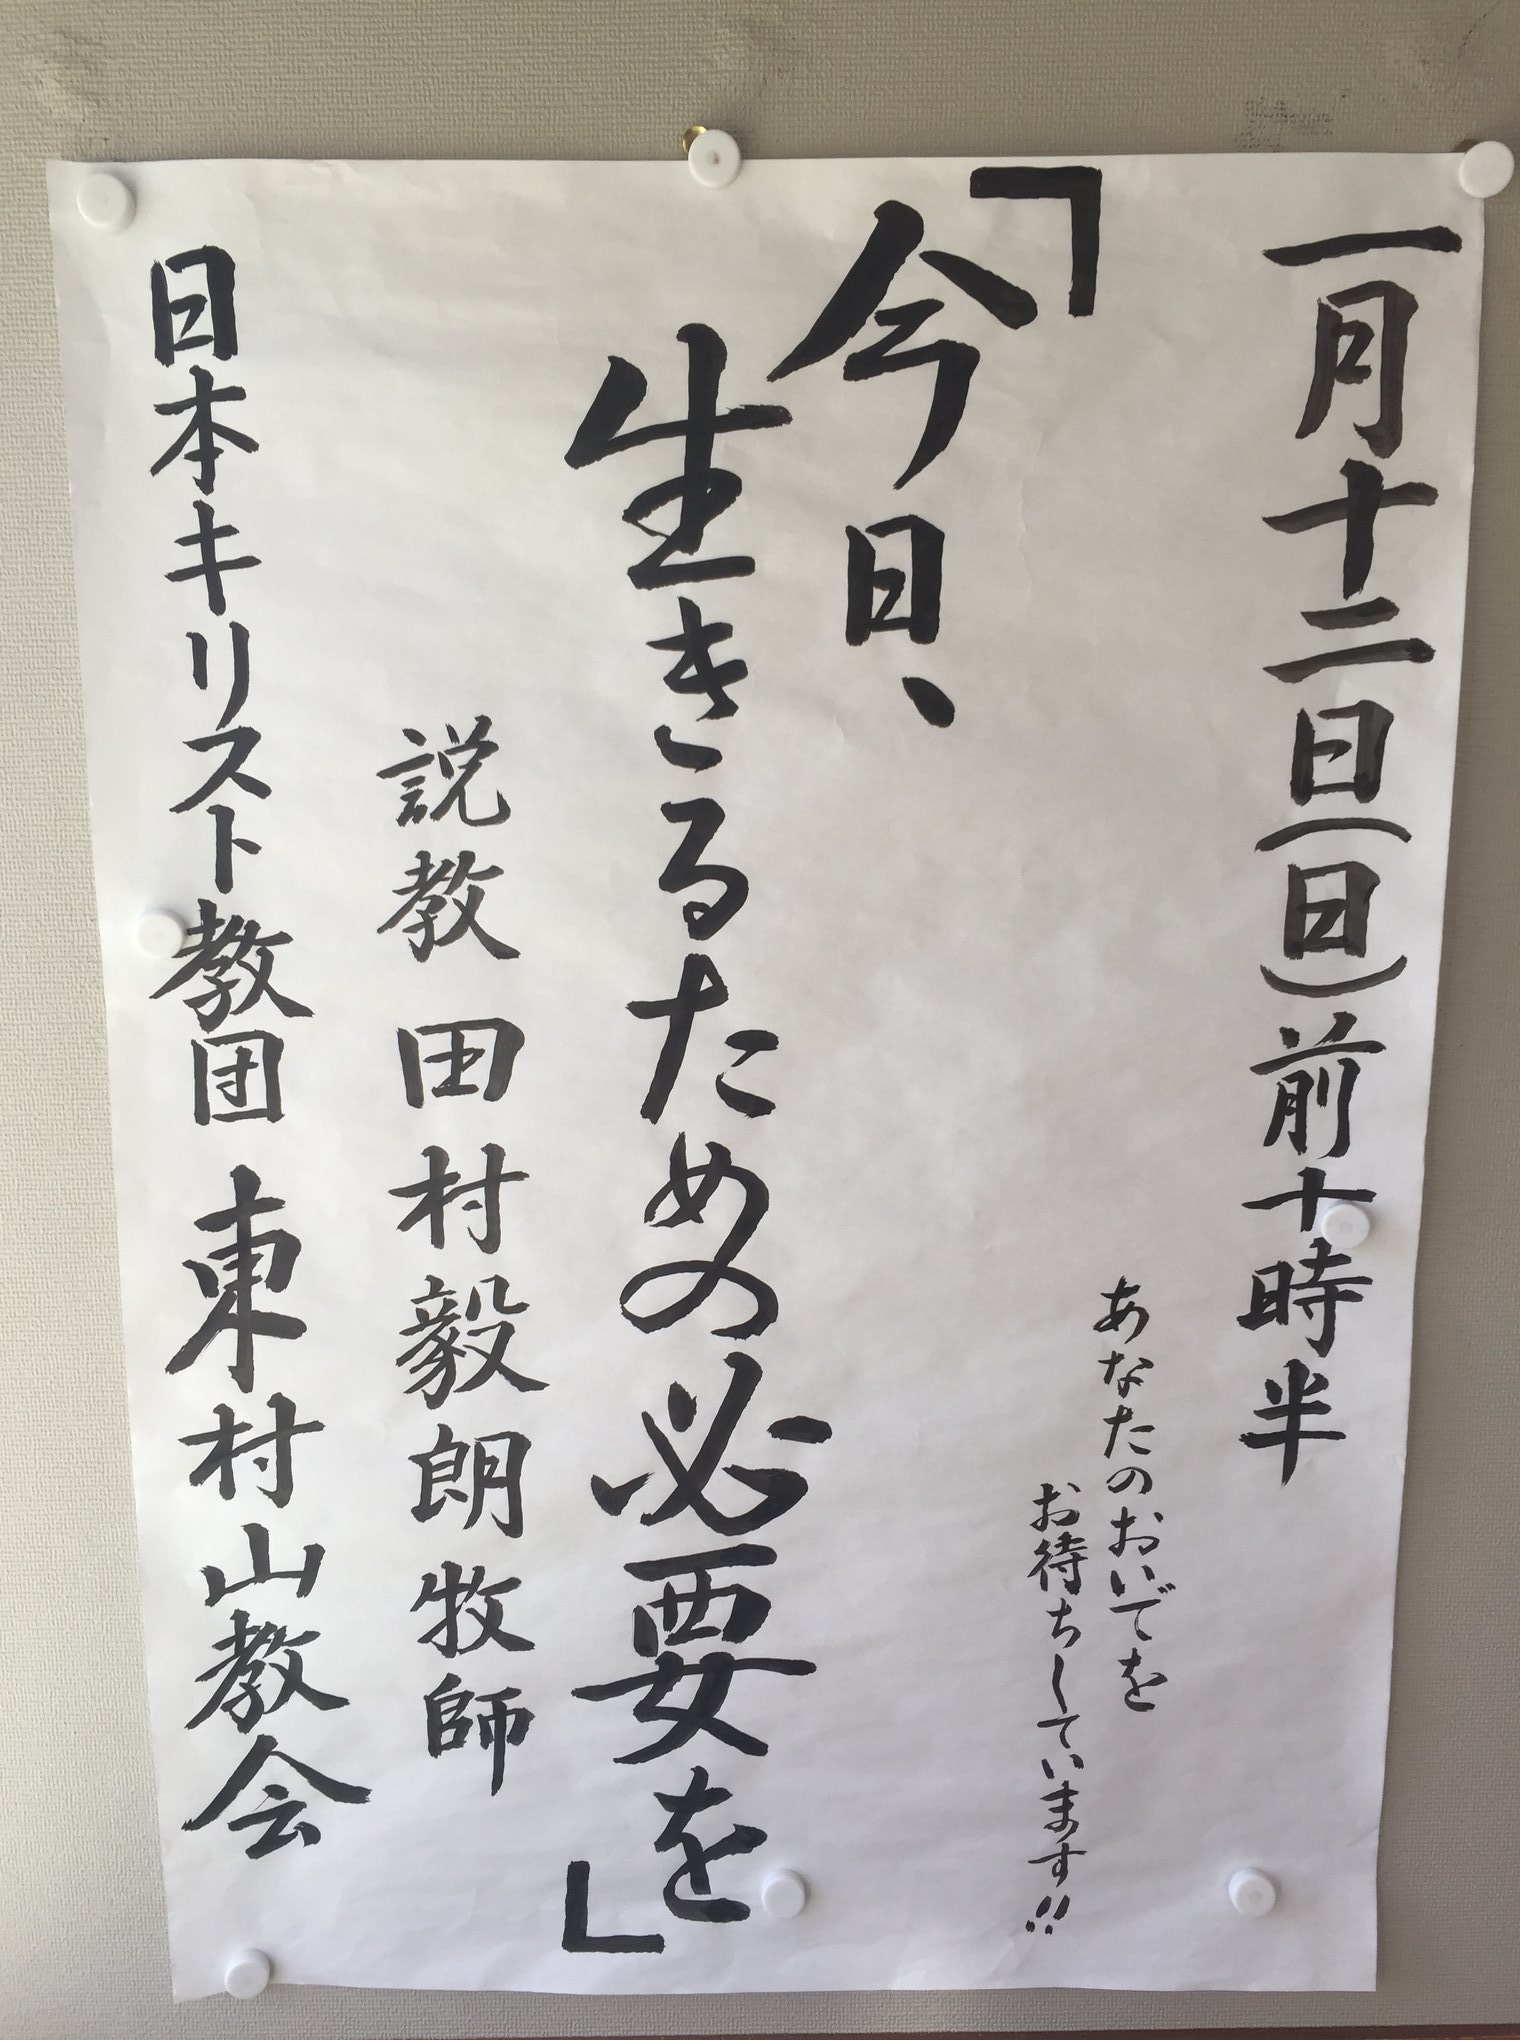 一月十二日(日)前十時半
あなたのおいでを
お待ちしています!!
「今日、
生きるための必要を」
説教 田村毅朗牧師
日本キリスト教団 東村山教会